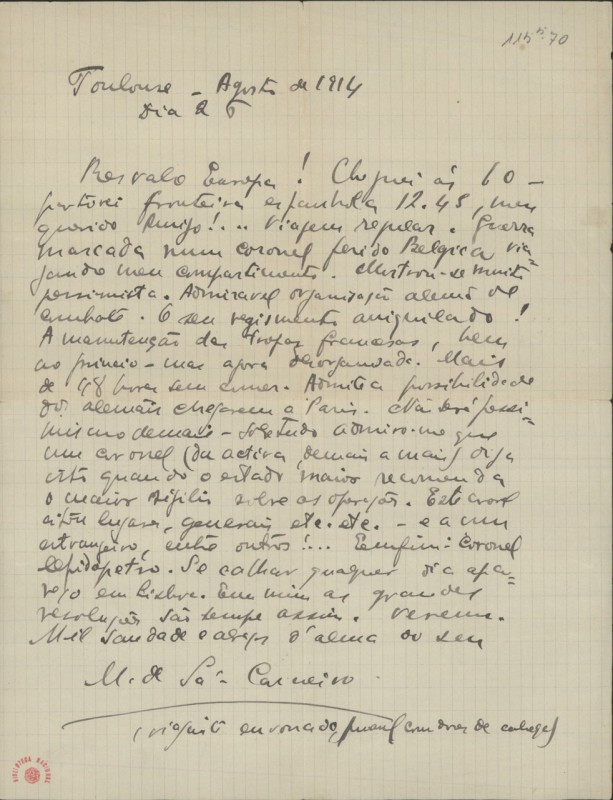 115⁵-70
Toulouse – Agosto de 1914
Dia 26
Resvalo Europa! Cheguei ás 6 0 –
fronteira espanhola 12.45, meu
querido Amigo!... Viagem regular. Guerra
marcada num coronel ferido Belgica via-
jando meu compartimento. Mostrou-se muito
pessimista. Admiravel organisação alemã de
combate. O seu regimento aniquilado!
A manutenção das tropas francesas, bem
ao principio – mas agora desorganisada. Mais
de 48 horas sem comer. Admitia possibilidade
dos alemães chegarem a Paris. Não será pessi-
mismo demais – Sobretudo admiro-me que
um coronel (da activa, demais a mais) diga
isto quando o estado maior recomenda
o maior sigilo sobre as operações. Este
citou lugares, generais etc. etc. – e a um
estrangeiro, entre outros!... Emfim: Coronel
Lepidoptero. Se calhar qualquer dia apa-
reço em Lisboa. Em mim as grandes
resoluções são sempre assim. Veremos.
Mil saudades e abraços d'alma do seu
M. de Sá-Carneiro
com dores de cabeça)
BIBLIOTECA NACIONAL